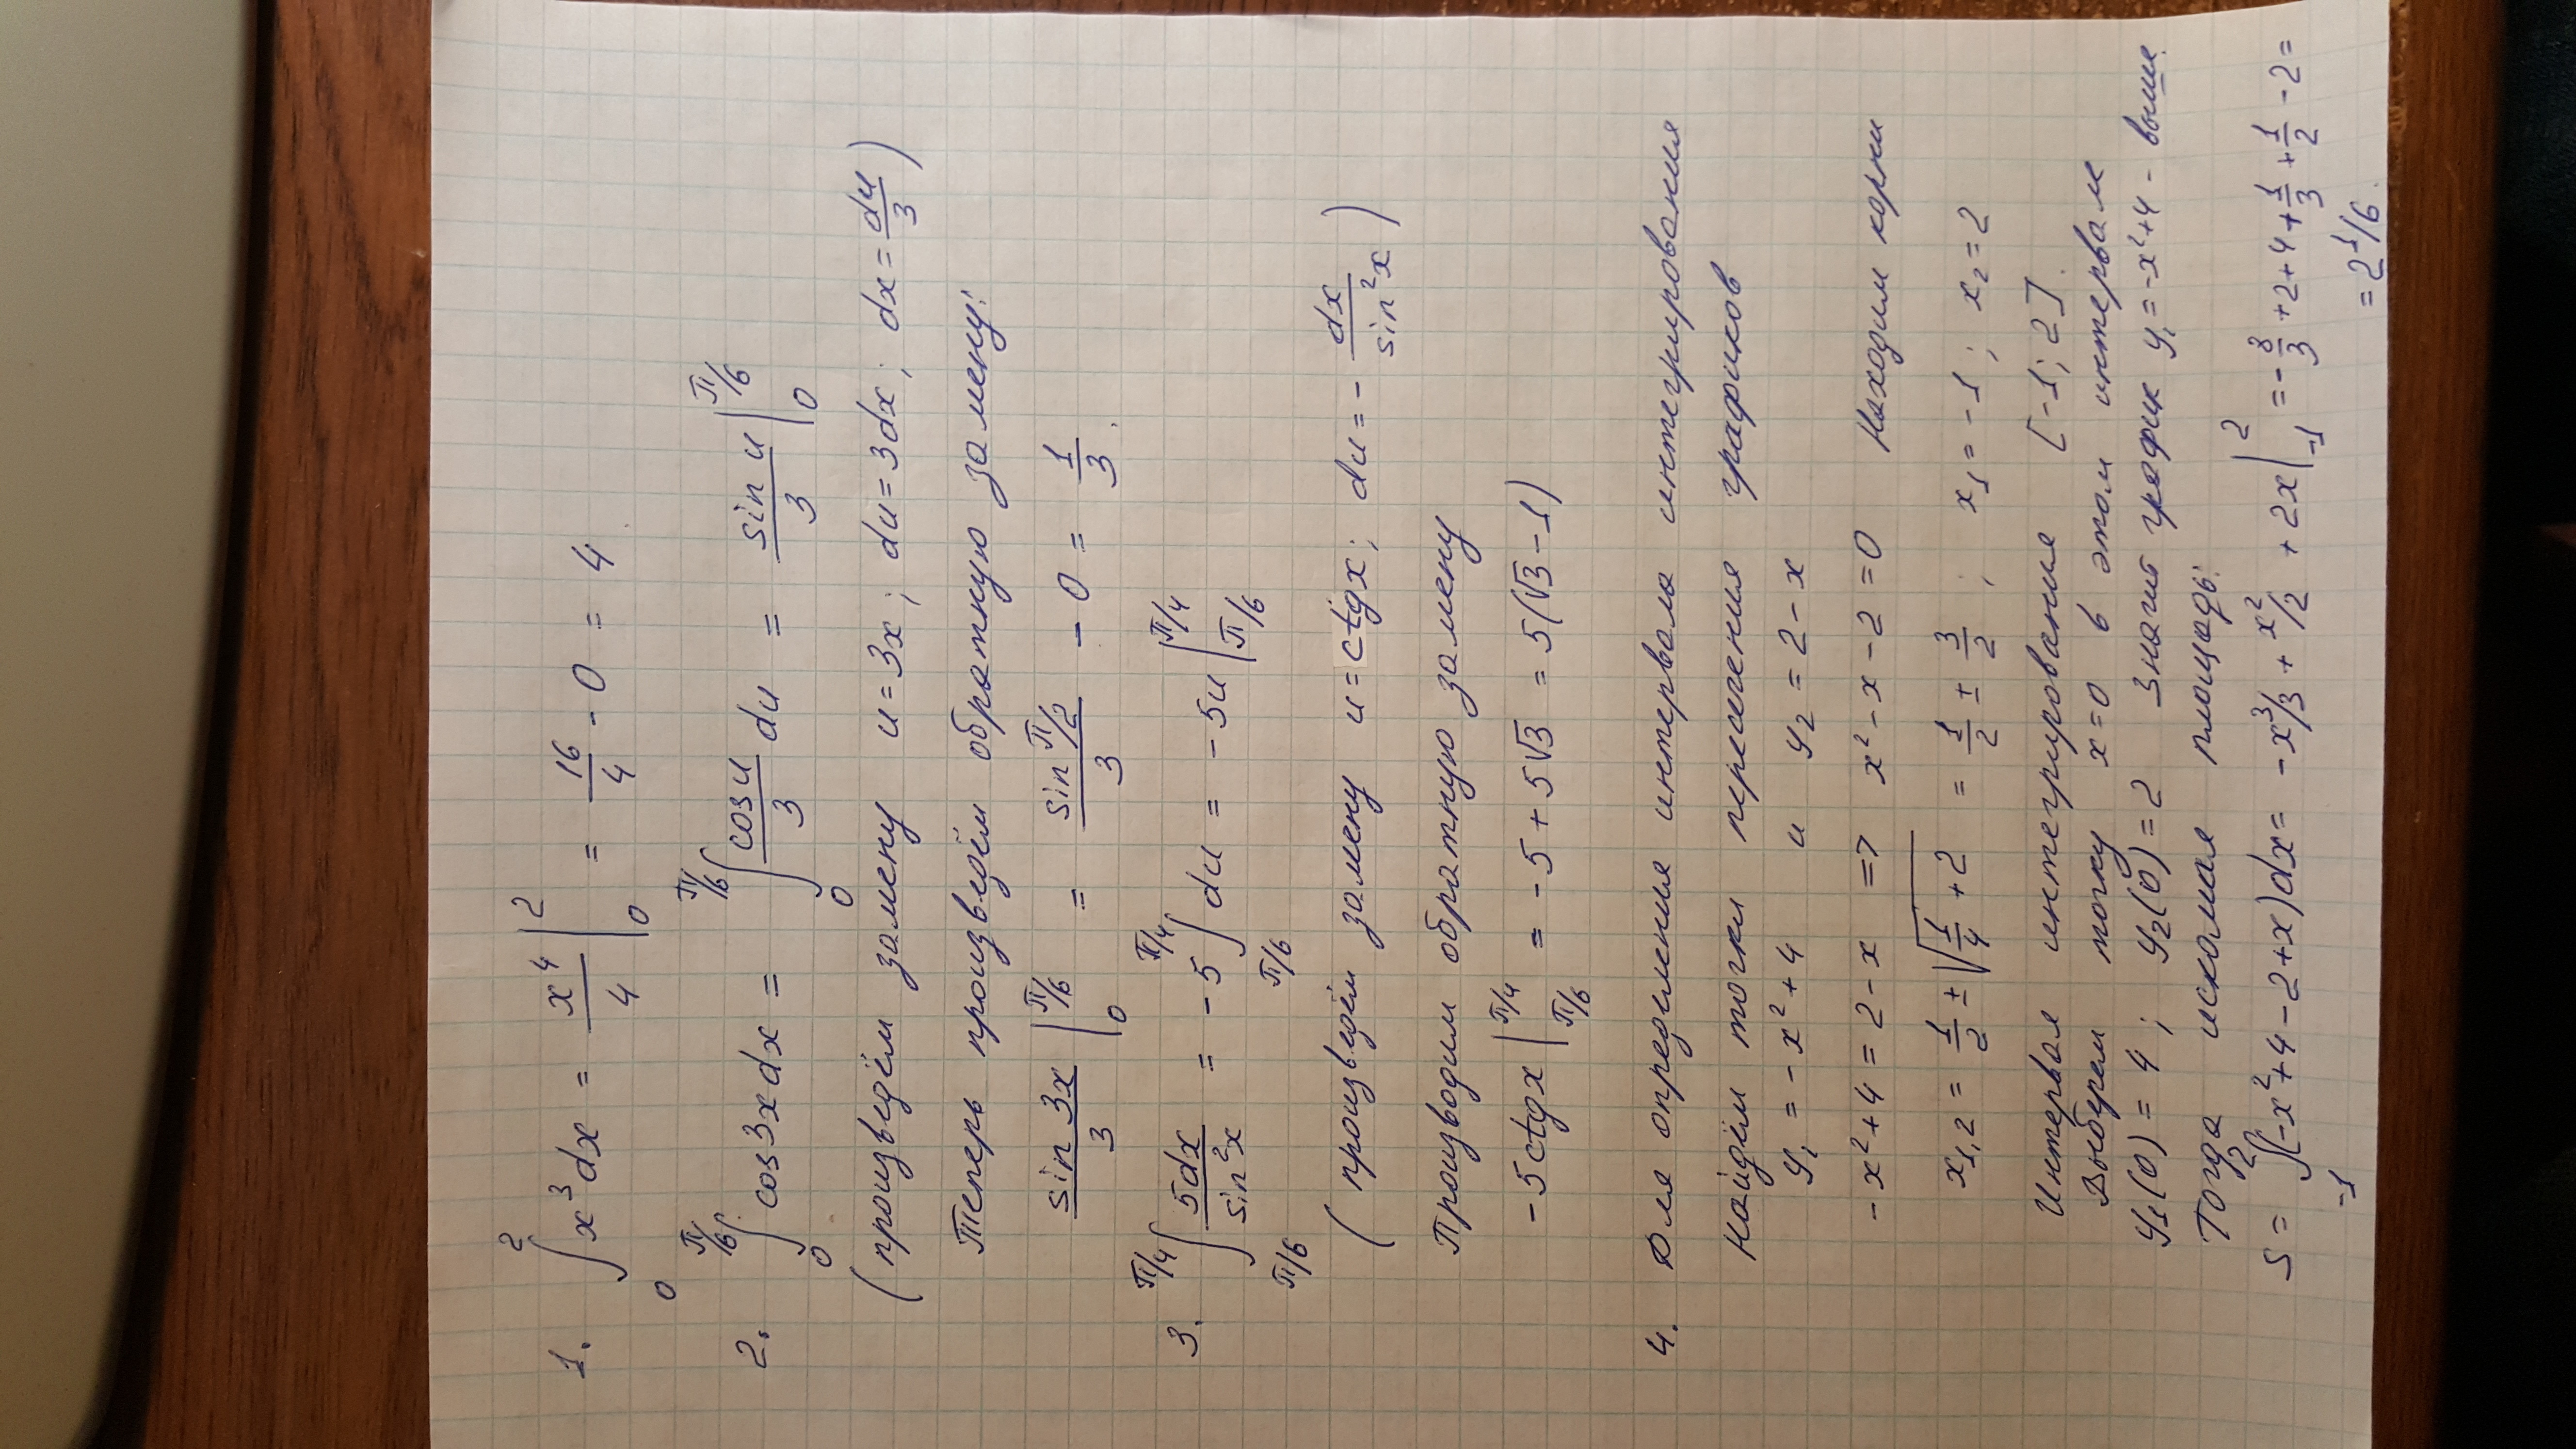 1. ∫₀² x³dx = x⁴/4 |₀² = 16/4 - 0 = 4
2. ∫₀^(π/6) cos3xdx = ∫₀^(π/6) cosu/3 du = sin u/3 |₀^(π/6)
(произведём замену u=3x; du=3dx; dx=du/3)
Теперь произведём обратную замену:
sin 3x/3 |₀^(π/6) = sin π/2/3 - 0 = 1/3.
3. ∫_(π/6)^(π/4) 5dx/sin²x = -5 ∫_(π/6)^(π/4) du = -5u |_(π/6)^(π/4)
(произведём замену u=ctgx; du=-dx/sin²x)
Производим обратную замену
-5ctgx |_(π/6)^(π/4) = -5+5√3 = 5(√3-1)
4. Для определения интервала интегрирования
найдём точки пересечения графиков
y₁ = -x²+4 и y₂ = 2-x
-x²+4 = 2-x => x²-x-2=0 Находим корни
x₁,₂ = 1/2 ± √(1/4+2) = 1/2 ± 3/2; x₁=-1; x₂=2
Интервал интегрирования [-1; 2].
Выберем точку x=0 в этом интервале
y₁(0)=4; y₂(0)=2 Значит график y₁=-x²+4 - выше.
Тогда искомая площадь:
S = ∫₋₁² (-x²+4-2+x)dx = -x³/3 + x²/2 + 2x |₋₁² = -8/3+2+4+1/3+1/2-2=
= 2 1/6.